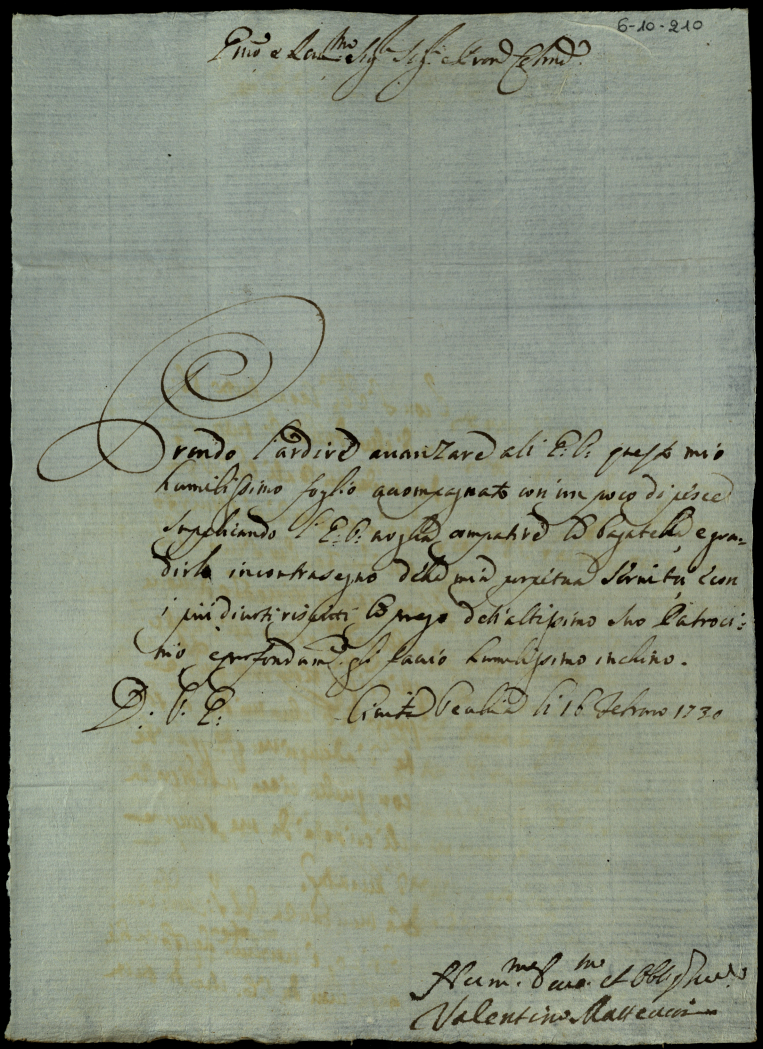 6-10-210
Emo e Rev.mo Sig.re Sig.re e Pron Colmo
Prendo l'ardire auanzare all'E: V: questo mio
humilissimo foglio accompagnato con un poco di pesce
supplicando l'E: V: uoglia compatire la bagatella e gra=
dirla in contrasegno della mia perpetua seruitù, e con
i più diuoti rispetti la prego dell'altissimo suo Patroci=
nio, e profondam.te gli faccio humilissimo inchino.
D: V: E: Ciuita Vecchia li 16 Febraro 1730
Hum.mo Deuo.mo et Obblig.mo Seru.e
Valentino Matteucci